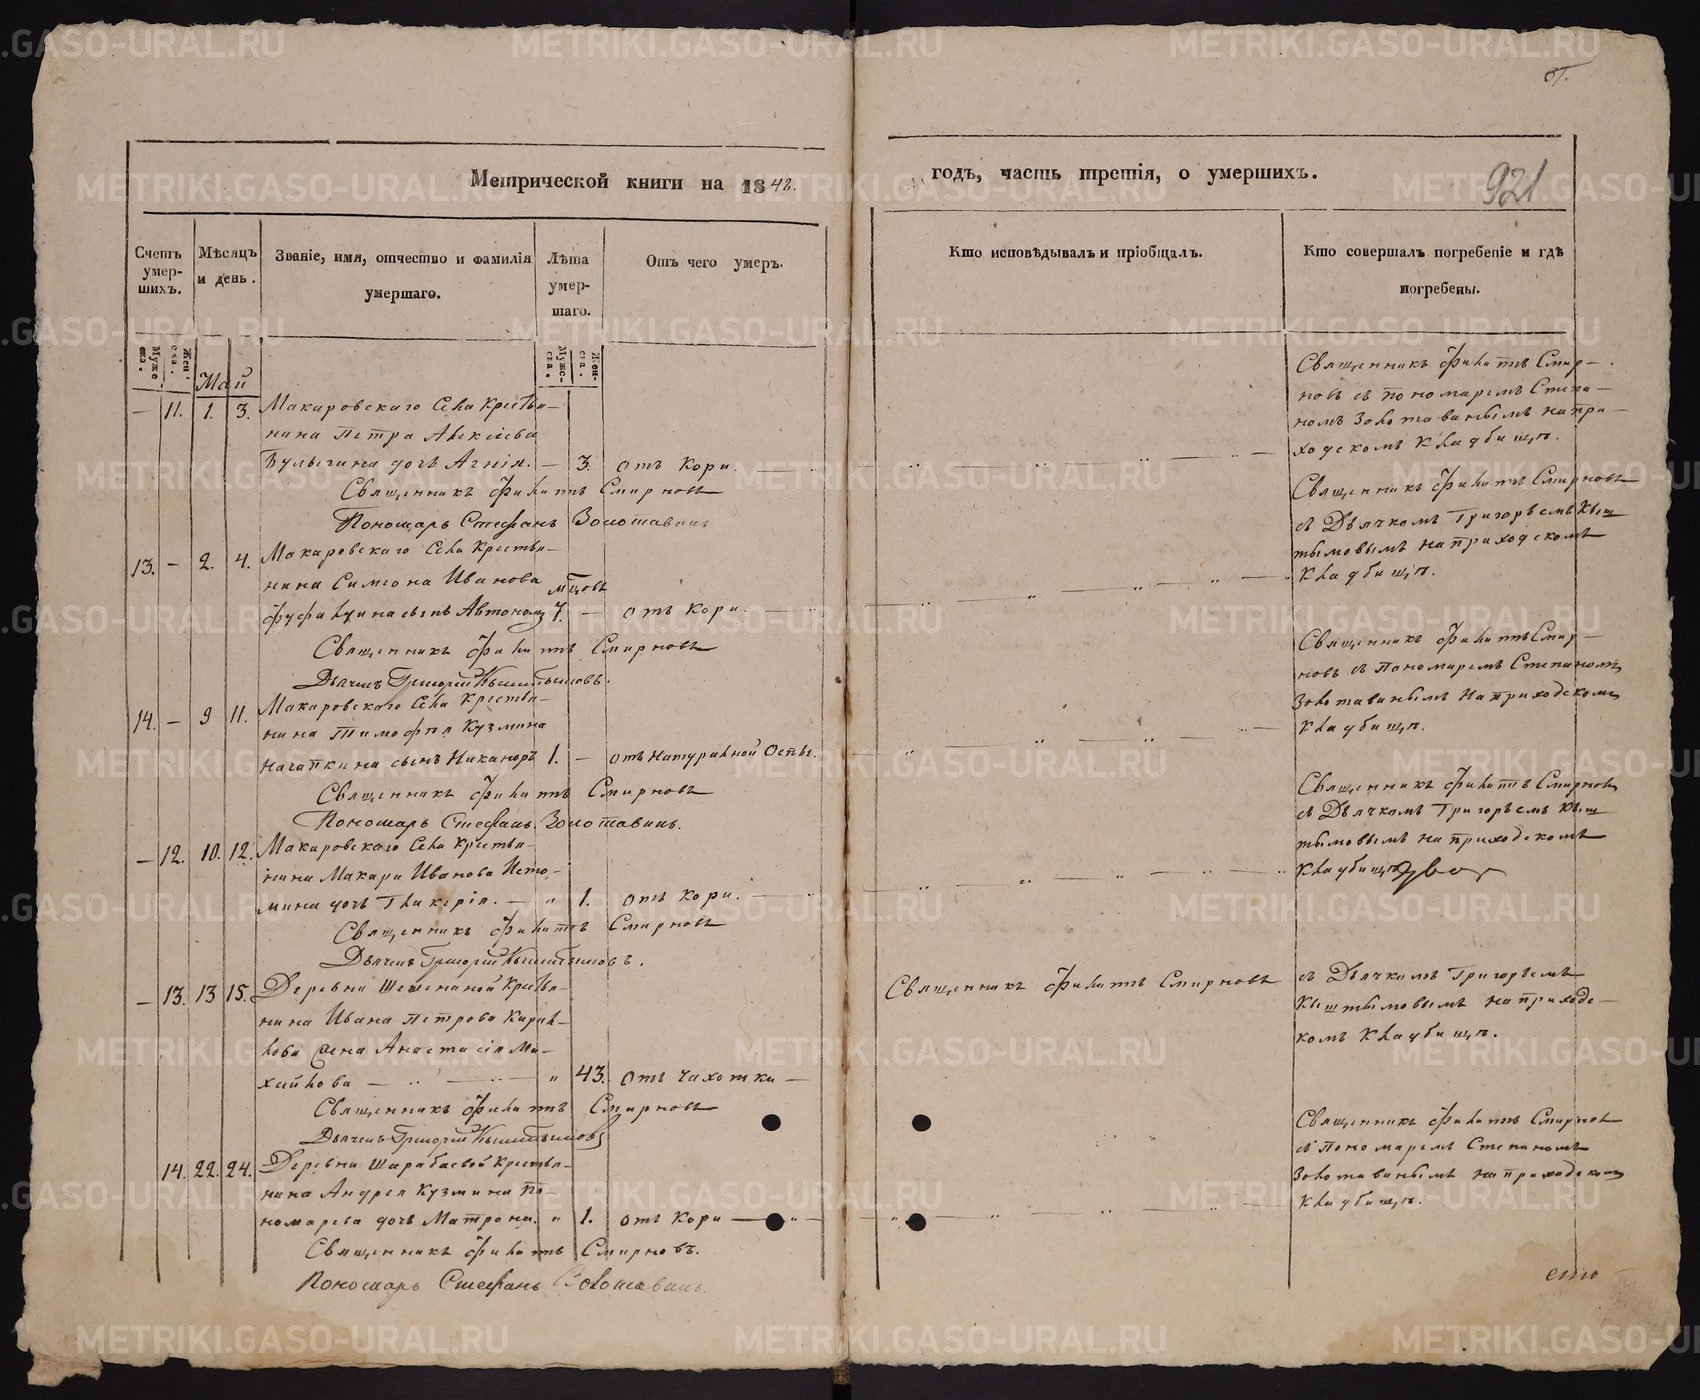 от.
Метрической книги на 1842.
годъ, часть третія, о умершихъ.
921
Счетъ умер-шихъ.
Мѣсяцъ и день.
Званіе, имя, отчество и фамилія умершаго.
Лѣта умер-шаго.
Отъ чего умеръ.
Кто исповѣдывалъ и пріобщалъ.
Кто совершалъ погребеніе и гдѣ погребены.
Май
— 11. 1. 3. Макаровскаго Села Крестья-
нина Петра Алексѣева
Булыгина дочь Агнія. — 3. отъ Кори.
Священникъ Филиппъ Смирновъ
Пономарь Стефанъ Золотавинъ
Священникъ Филиппъ Смир-
новъ съ пономаремъ Степа-
номъ Золотавинымъ на при-
ходскомъ Кладбищѣ.
13. — 2. 4. Макаровскаго Села Крестья-
нина Симеона Иванова
сынъ Автономъ 7. мѣсцовъ — отъ Кори.
Священникъ Филиппъ Смирновъ
Дьячекъ Григорій Кыштымовъ.
Священникъ Филиппъ Смирновъ
съ Дьячкомъ Григорьемъ Кыш
тымовымъ на приходскомъ
Кладбищѣ.
14. — 9 11. Макаровскаго Села Крестья-
нина Тимофея Кузмина
Начапкина сынъ Никаноръ 1. — отъ Натуральной Оспы.
Священникъ Филиппъ Смирновъ
Пономарь Стефанъ Золотавинъ.
Священникъ Филиппъ Смир-
новъ съ Пономаремъ Степаномъ
Золотавинымъ На приходскомъ
Кладбищѣ.
— 12. 10. 12. Макаровскаго Села Крестья-
нина Макара Иванова Исто-
мина дочь Гликерія. — „ 1. отъ Кори.
Священникъ Филиппъ Смирновъ
Дьячекъ Григорій Кыштымовъ.
Священникъ Филиппъ Смирновъ
съ Дьячкомъ Григорьемъ Кыш
тымовымъ на приходскомъ
Кладбищѣ
— 13. 13 15. Деревни Шешениной Крестья-
нина Ивана Петрова Кирил-
лова жена Анастасія Ми-
хайлова — „ 43. отъ Чахотки —
Священникъ Филиппъ Смирновъ
Дьячекъ Григорій Кыштымовъ
Священникъ Филиппъ Смирновъ
съ Дьячкомъ Григорьемъ
Кыштымовымъ на приход-
скомъ Кладбищѣ.
14. 22. 24. Деревни Шарабаевой Крестья-
нина Андрея Кузмина По-
номарева дочь Матрона. „ 1. отъ Кори
Священникъ Филиппъ Смирновъ.
Пономарь Стефанъ Золотавинъ.
Священникъ Филиппъ Смирновъ
съ Пономаремъ Степаномъ
Золотавинымъ на приходскомъ
Кладбищѣ.
сто
METRIKI.GASO-URAL.RU